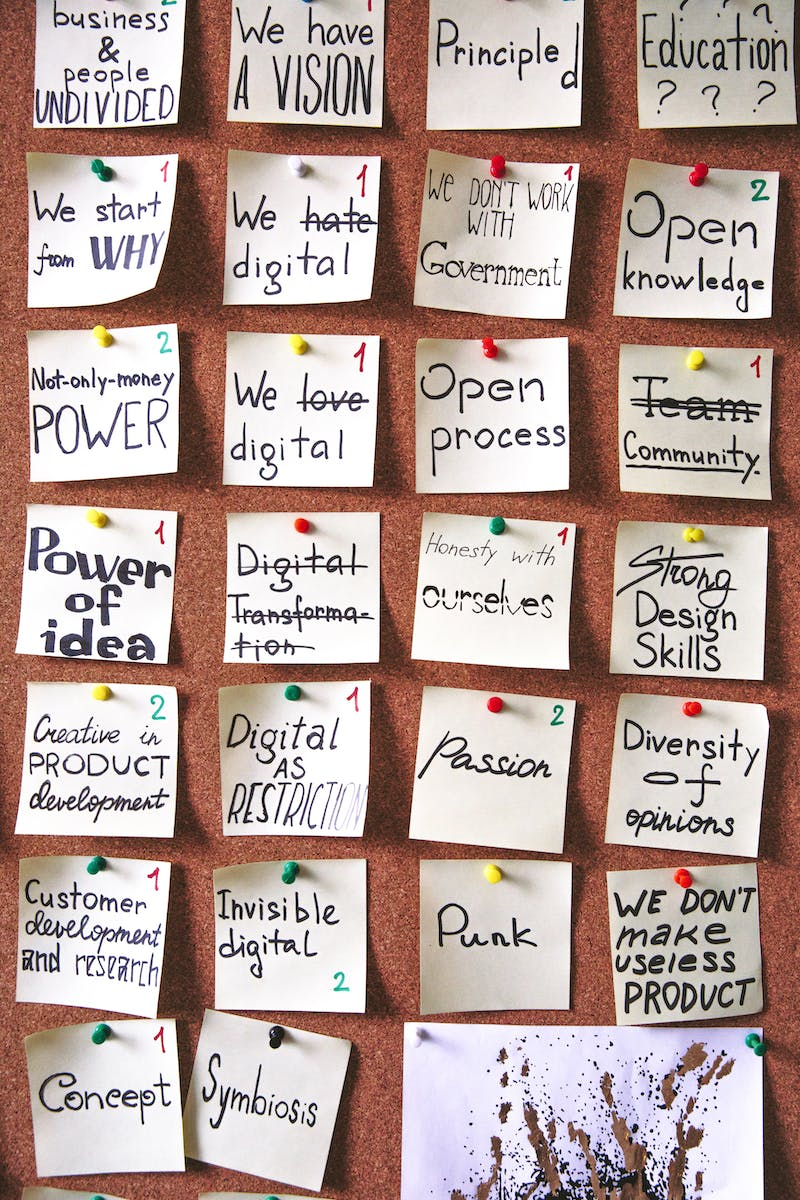 2
business
&
people
UNDIVIDED
1
We have
A VISION
Principle
d
? ? ?
Education
? ? ?
1
We start
from WHY
1
We hate
digital
1
WE DON'T WORK
WITH
Government
2
Open
knowledge
2
Not-only-money
POWER
1
We love
digital
Open
process
1
Team
Community.
1
Power
of
idea
Digital
Transforma-
tion
1
Honesty with
ourselves
Strong
Design
Skills
2
Creative in
PRODUCT
development
1
Digital
AS
RESTRICTION
2
Passion
Diversity
of
opinions
1
Customer
development
and research
Invisible
digital
2
Punk
WE DON'T
make
useless
PRODUCT
1
Concept
Symbiosis